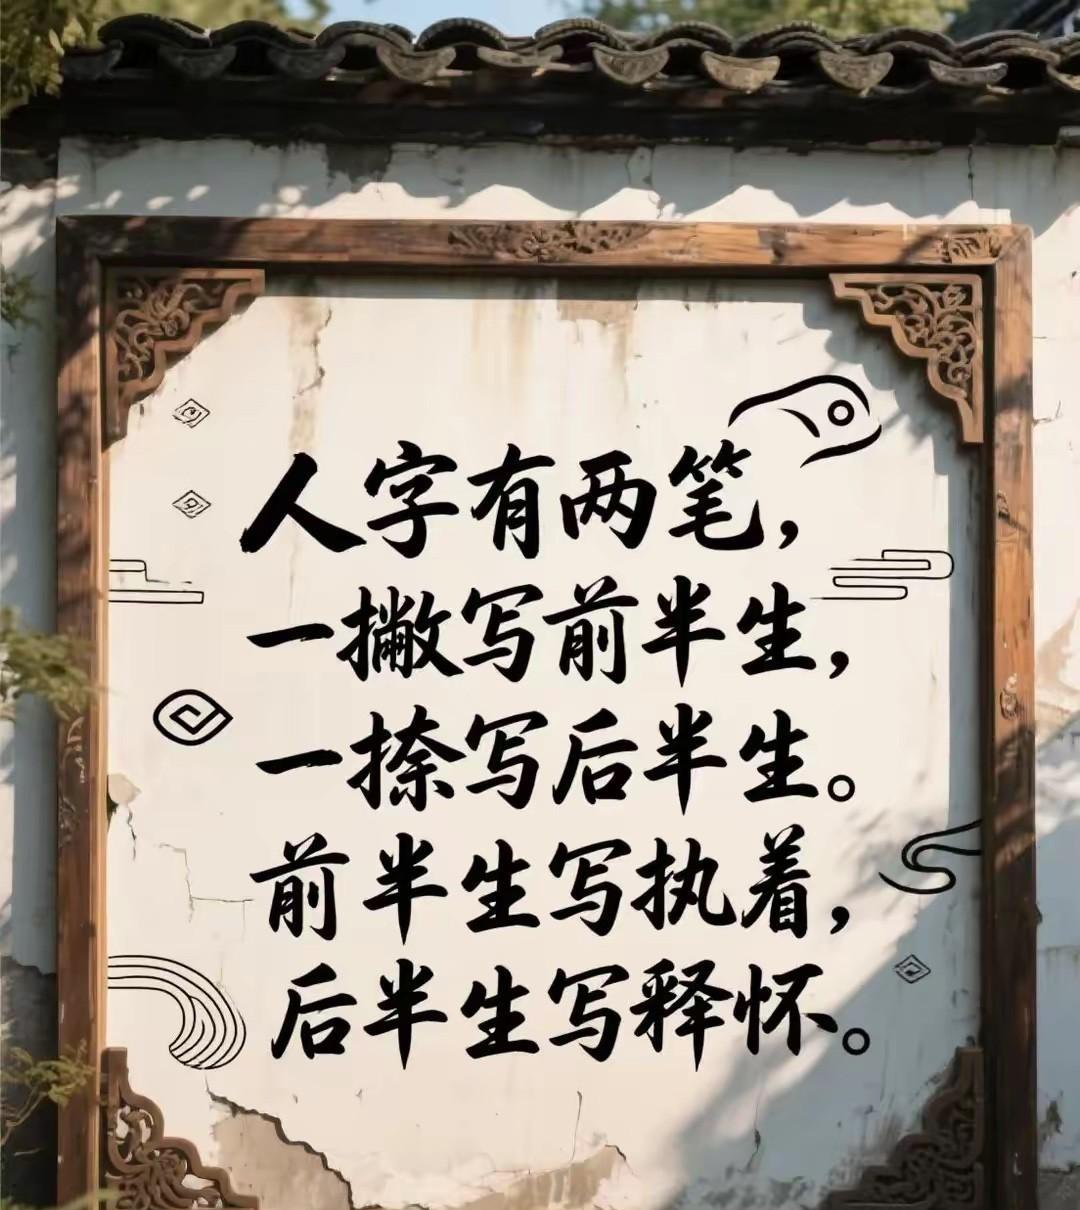 人字有两笔，
一撇写前半生，
一捺写后半生。
前半生写执着，
后半生写释怀。